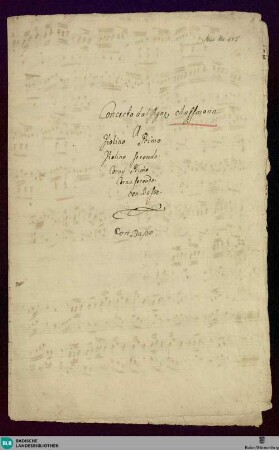 Concerto dal Sigre Hoffmann
A
Violino Primo
Violino Secondo
Corno Primo
Corno Secondo
con Basso
Con Basso
BLB BADISCHE
LANDESBIBLIOTHEK
Baden-Württemberg